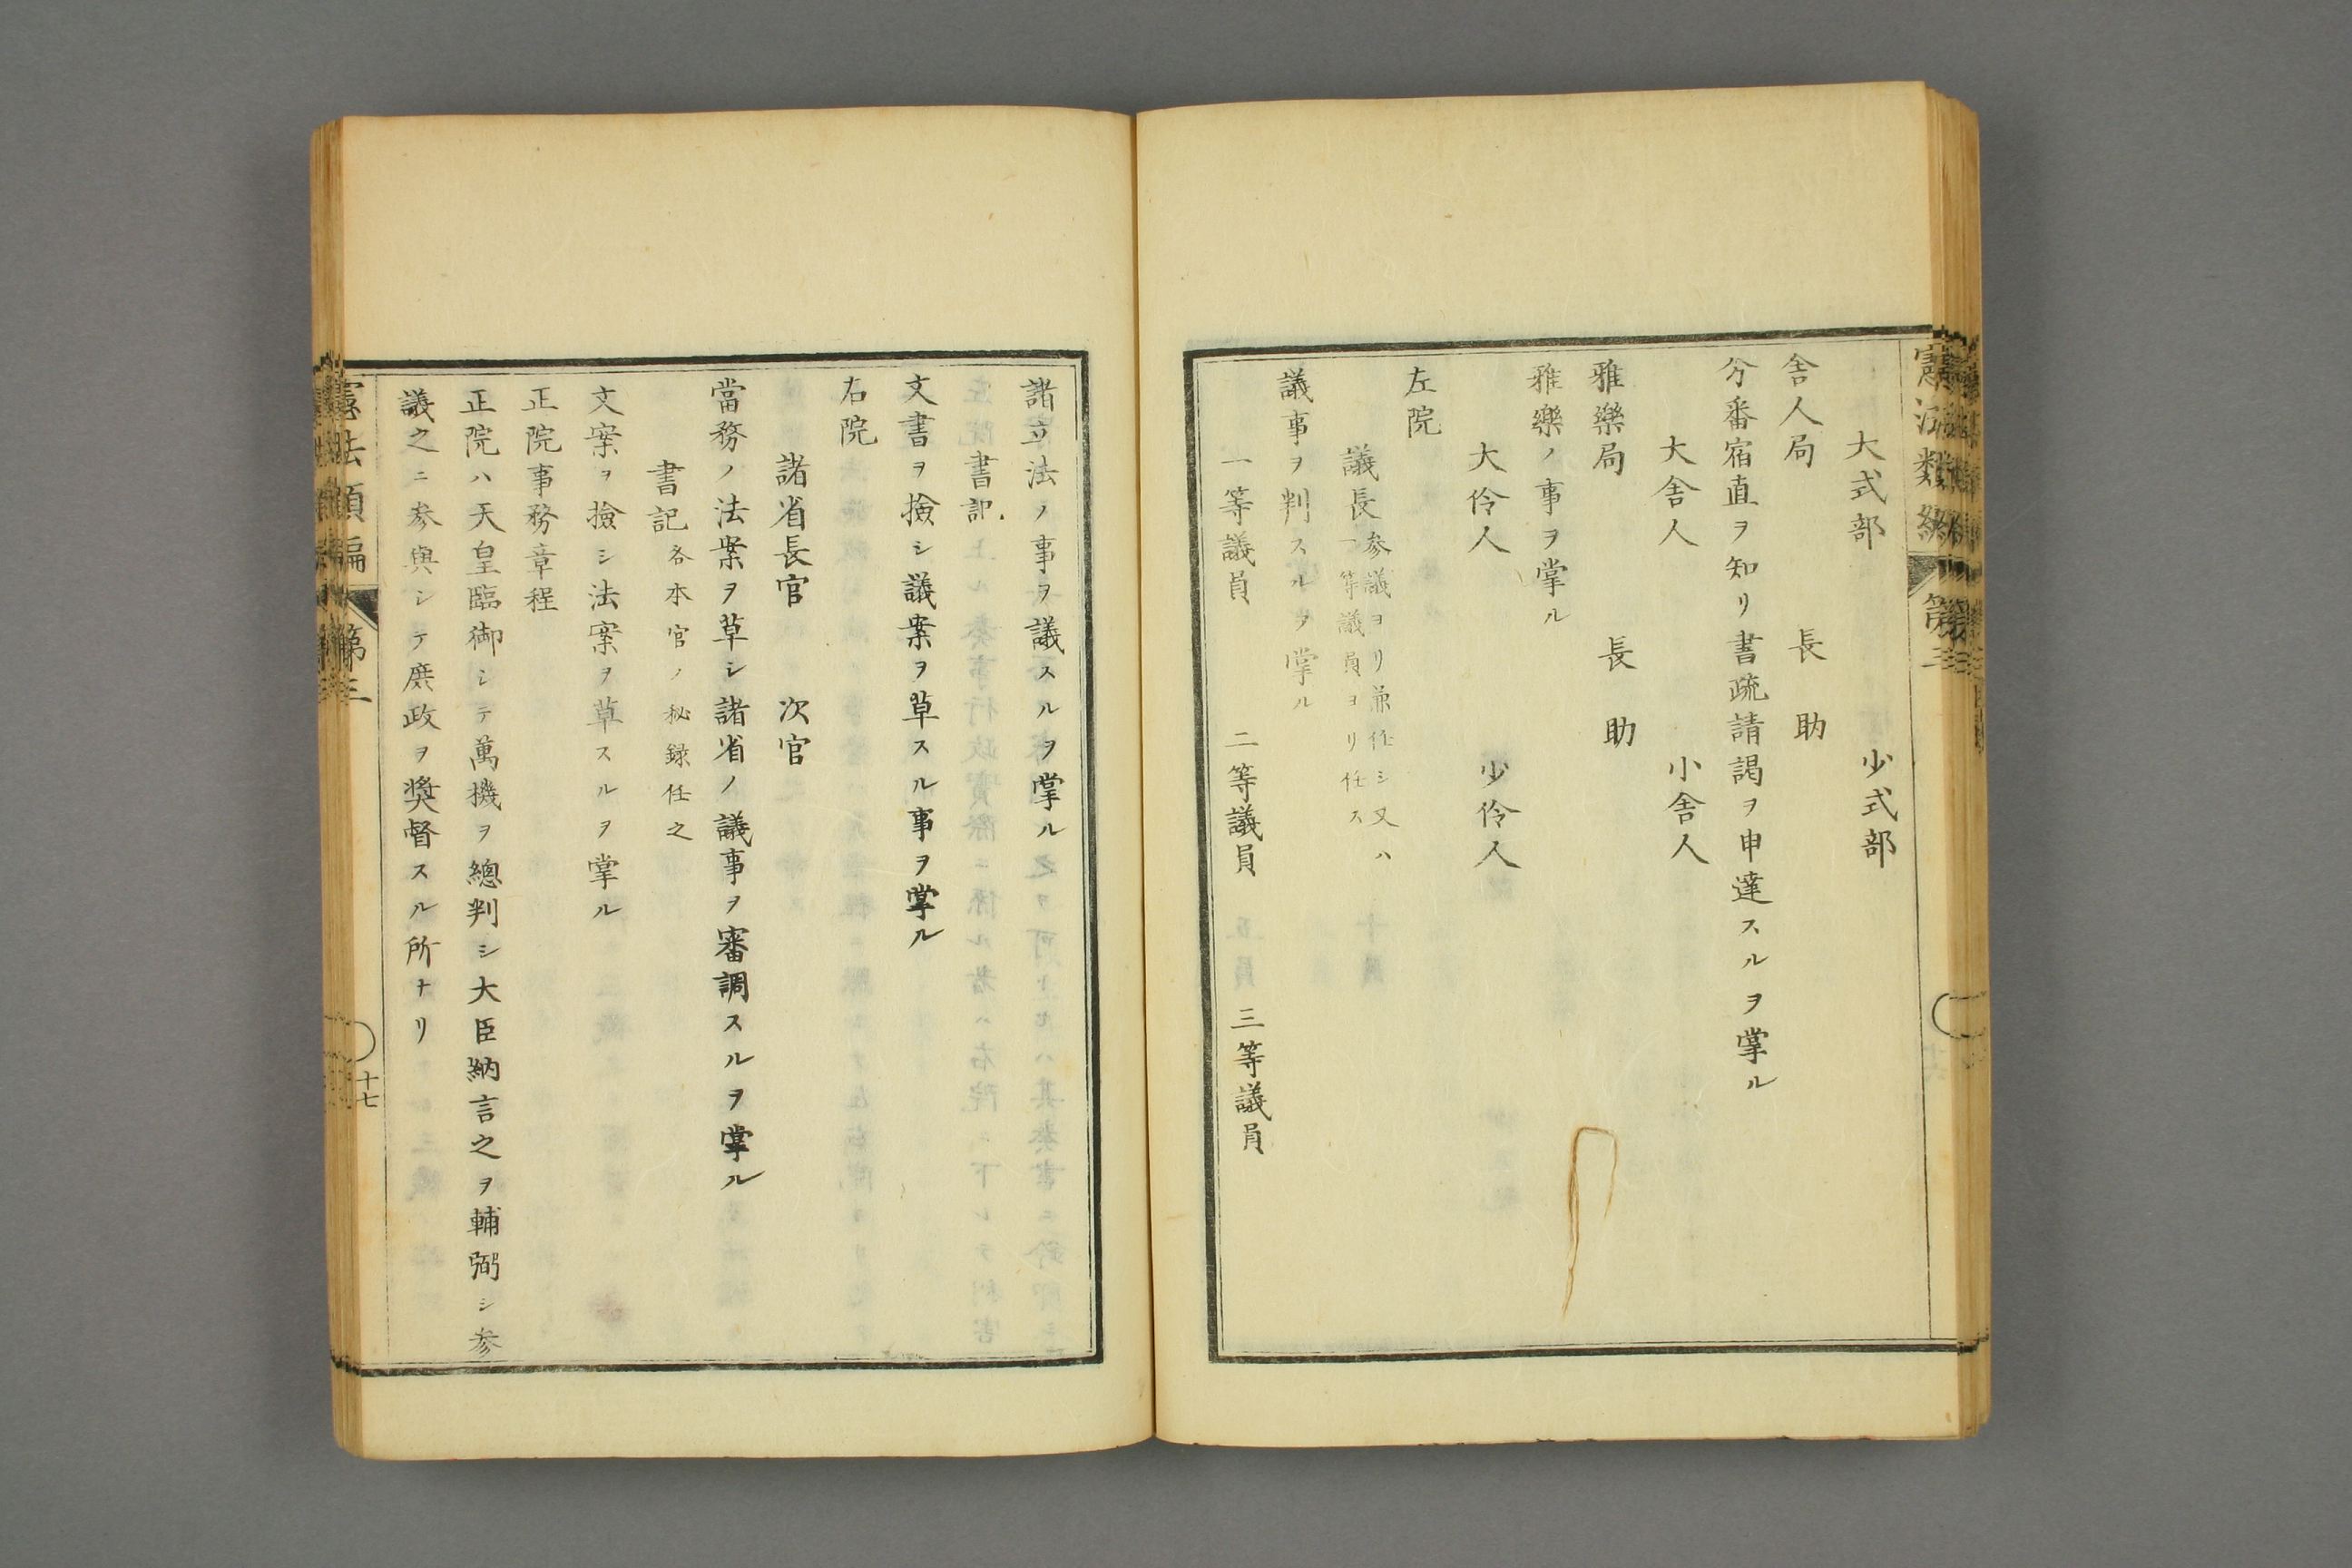 憲法類編 第三
大式部 少式部
舎人局 長 助
分番宿直ヲ知リ書疏請謁ヲ申達スルヲ掌ル
大舎人 小舎人
雅樂局 長 助
雅樂ノ事ヲ掌ル
大伶人 少伶人
左院
議長 参議ヨリ兼任シ又ハ
一等議員ヨリ任ス
議事ヲ判スルヲ掌ル
一等議員 二等議員 三等議員
諸立法ノ事ヲ議スルヲ掌ル
書記
文書ヲ撿シ議案ヲ草スル事ヲ掌ル
右院
諸省長官 次官
當務ノ法案ヲ草シ諸省ノ議事ヲ審調スルヲ掌ル
書記 各本官ノ秘録任之
文案ヲ撿シ法案ヲ草スルヲ掌ル
正院事務章程
正院ハ天皇臨御シテ萬機ヲ總判シ大臣納言之ヲ輔弼シ参
議之ニ参與シテ庶政ヲ奨督スル所ナリ
憲法類編 第三 十七